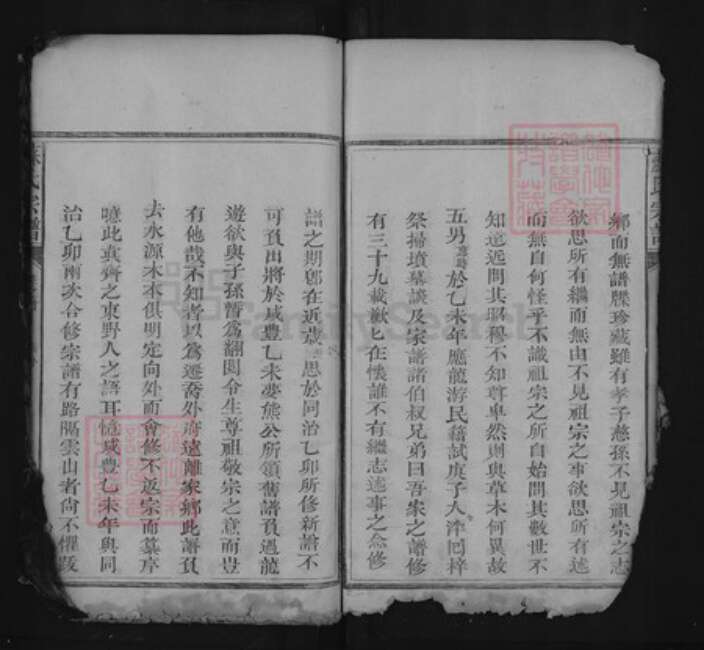 鄉而無譜牒珍藏雖有孝子慈孫不見祖宗之志
欲思所有繼而無由不見祖宗之事欲思所有述
而無自何怪乎不識祖宗之所自始問其數世不
知遠近問其昭穆不知尊卑然則與草木何異故
五男於乙未年應龍游民籍試庚子入泮囘梓
祭掃墳墓談及家譜諸伯叔兄弟曰吾家之譜修
有三十九載歉匕在懷誰不有繼志述事之念修
譜之期郎在近歲思於同治乙卯所修新譜不
可負出將於咸豊乙未婁熊公所領舊譜負過龍
遊欲與子孫暫爲翻閲令生尊祖敬宗之意而豈
有他哉不知者以爲遷喬外府遠離家鄉此譜負
去水源木本俱明定向외而會修不返宗而纂序
噫此眞齊之東野人之語耳憶咸豊乙未年與同
治乙卯兩次合修宗譜有路隔雲山者尙不憚跋
氏宗譜
FamilySearch